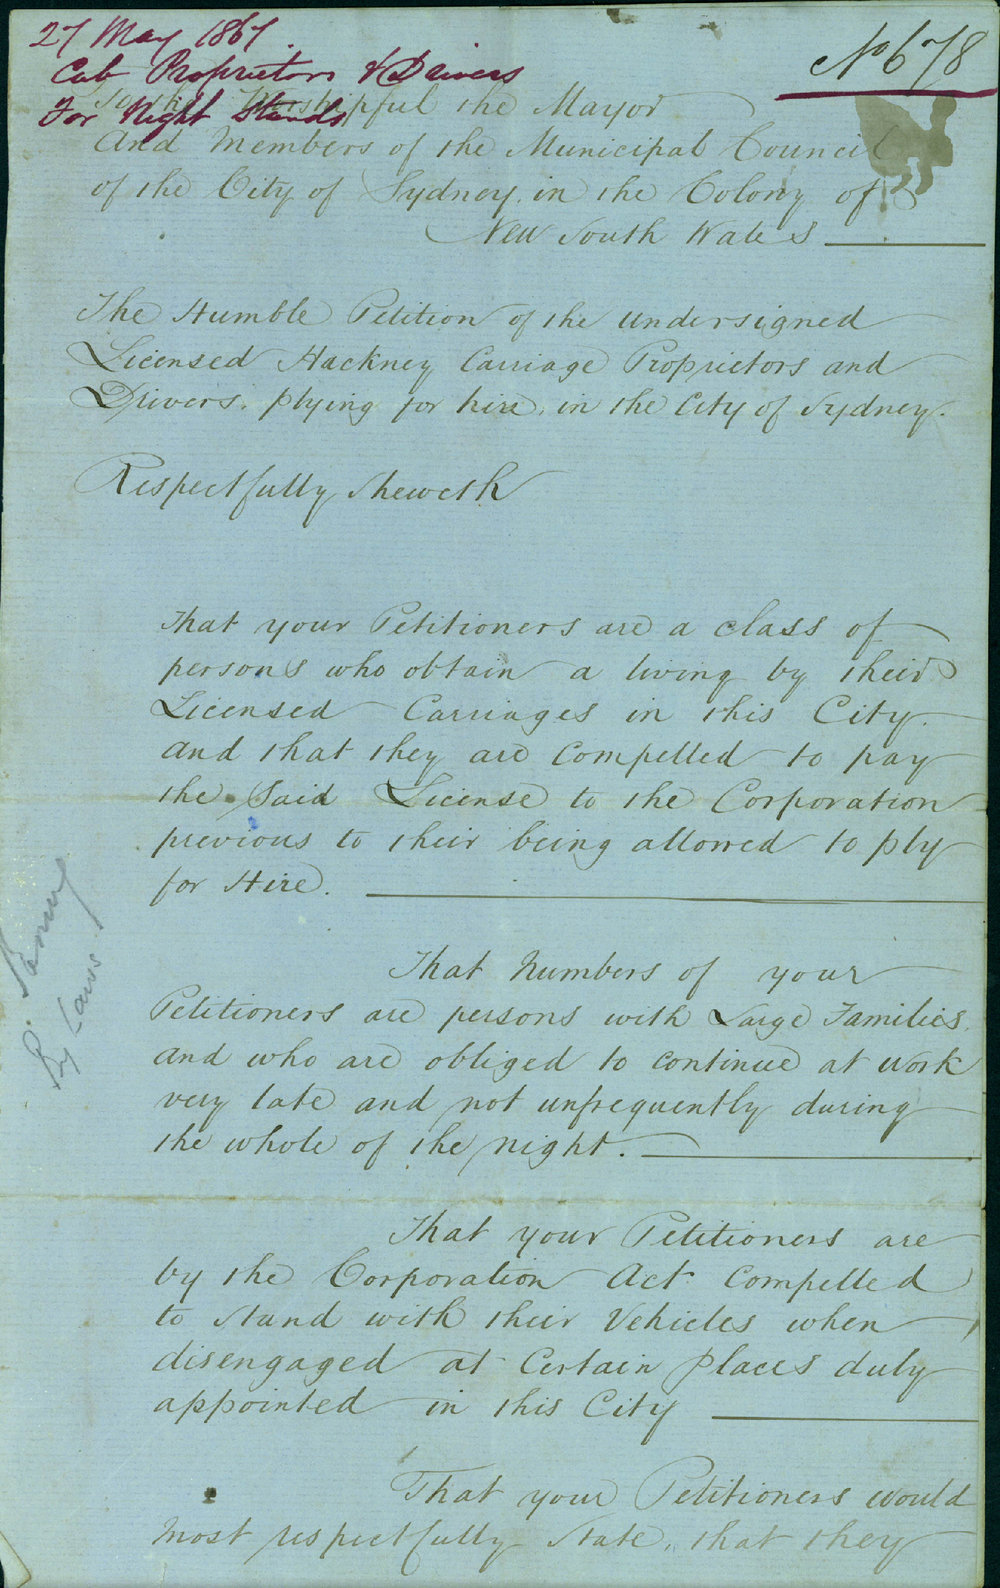 27 May 1867.
Cab Proprietors & Drivers
For Night Stands
No 678
To the Worshipful the Mayor
And Members of the Municipal Council
of the City of Sydney, in the Colony of
New South Wales
The Humble Petition of the undersigned
Licensed Hackney Carriage Proprietors and
Drivers. plying for hire, in the City of Sydney.
Respectfully Sheweth
That your Petitioners are a class of
persons who obtain a living by their
Licensed Carriages in this City.
and that they are compelled to pay
the Said License to the Corporation
previous to their being allowed to ply
for Hire.
That Numbers of your
Petitioners are persons with Large Families,
and who are obliged to continue at work
very late and not unfrequently during
the whole of the night.
That your Petitioners are
by the Corporation Act compelled
to Stand with their Vehicles when
disengaged at Certain places duly
appointed in this City
That your Petitioners would
Most respectfully State, that they
By Laws